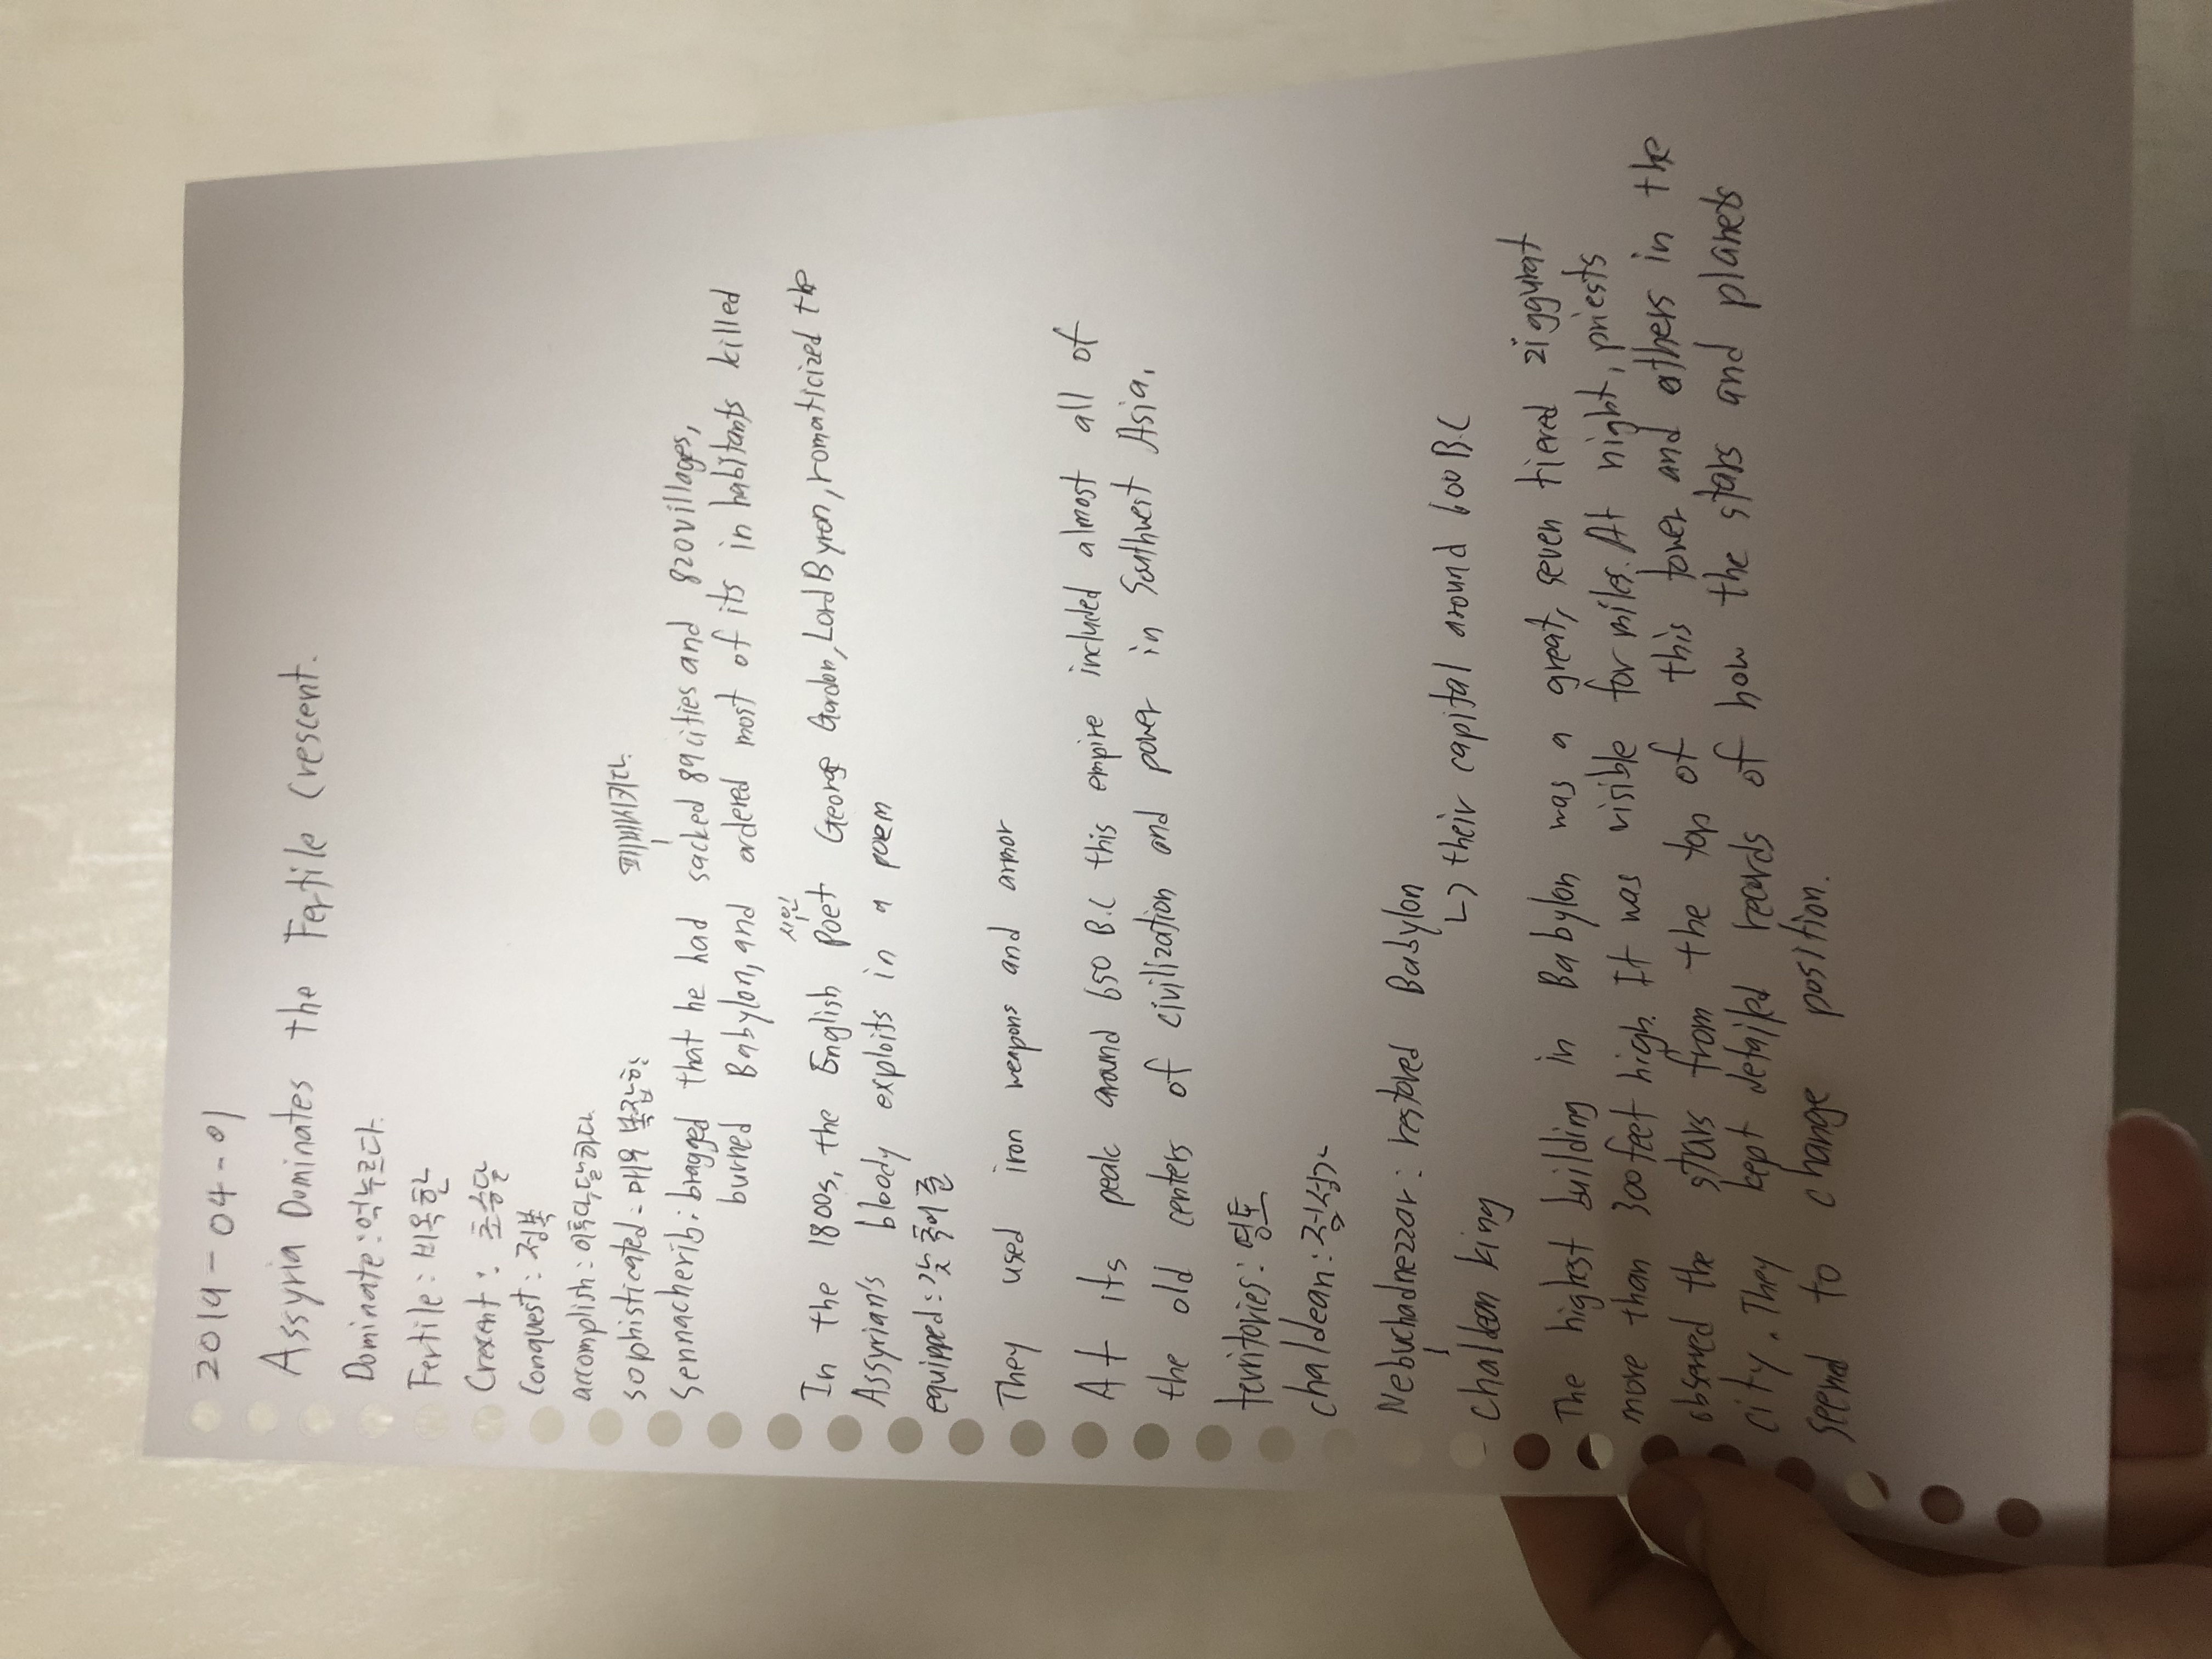 2019-04-01
Assyria Dominates the Fertile Crescent.
Dominate: 억누르다.
Fertile: 비옥한
Cresent: 초승달
Conquest: 정복
accomplish: 이룩, 달하다.
sophisticated: 매우 복잡한 패배시키다.
Sennacherib: bragged that he had sacked 89 cities and 820 villages,
burned Babylon, and ordered most of its in habitants killed
시인
In the 1800s, the English Poet George Gordon, Lord Byron, romanticized the
Assyrian's bloody exploits in a poem
equipped: 갖추어줄
They used iron weapons and armor
At its peak around 650 B.C this empire included almost all of
the old centers of civilization and power in Southwest Asia.
territories: 영토
chaldean: 점성가
Nebuchadnezzar: restored Babylon
chaldean king ↳ their capital around 600 B.C
The highest building in Babylon was a great, seven tiered ziggurat
more than 300 feet high. It was visible for miles. At night, priests
observed the stars from the top of this tower and others in the
city. They kept detailed records of how the stars and planets
seemd to change position.